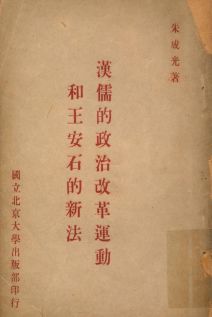 朱成光著
漢儒的政治改革運動
和王安石的新法
國立北京大學出版部印行